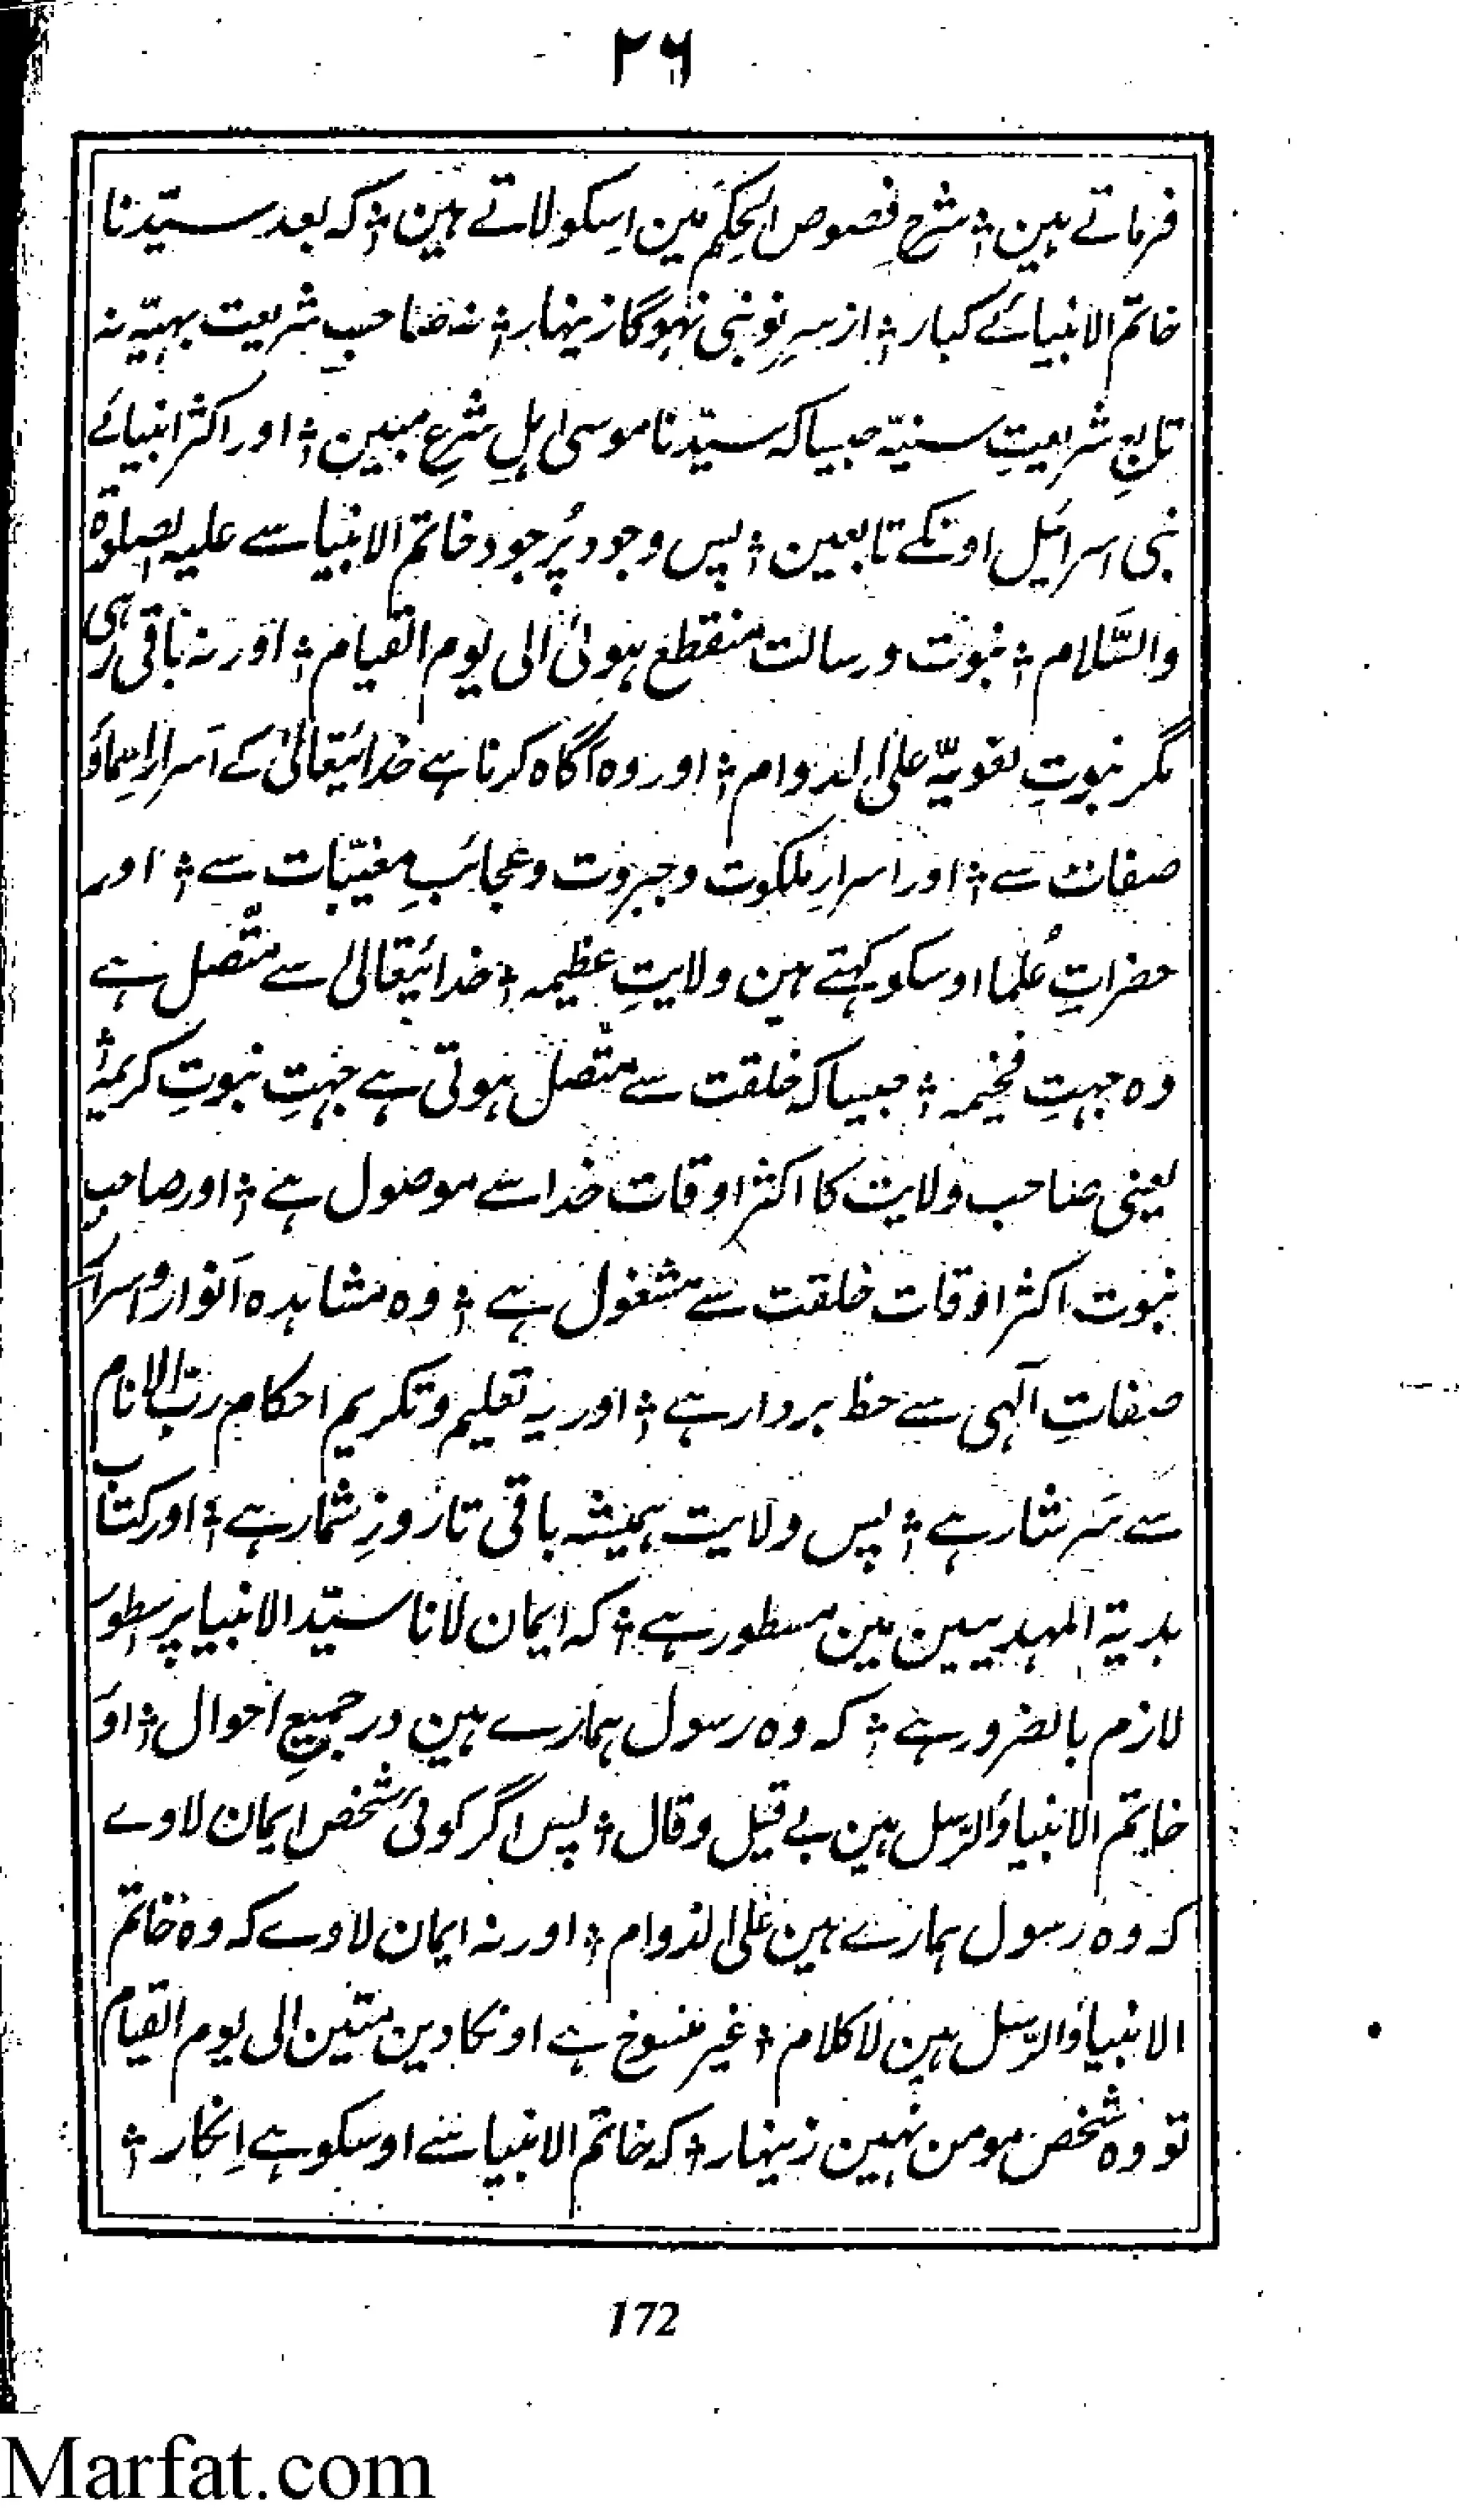 ۲۶
فرماتے ہین ؛ شرح فصوص الحِکَم مین اِسکو لاتے ہین ؛ کہ بعد سیّدنا
خاتم الانبیائے کبار ؛ از سرِ نو نبی نہوگا زینہار ؛ نہ صاحبِ شریعت بہیّہ نہ
تابعِ شریعتِ سنیّہ جیسا کہ سیّدنا موسی اہلِ شرعِ مبین ؛ اور اکثر انبیائے
بنی اسرائیل اونکے تابعین ؛ پس وجود پُرجود خاتم الانبیا سے علیہ الصلوۃ
والسّلام ؛ نبوت و رسالت منقطع ہوئی الی یوم القیام ؛ اور نہ باقی رہی
مگر نبوتِ لغویّہ علیٰ الدوام ؛ اور وہ آگاہ کرنا ہے خدایتعالیٰ کے اَسرارِ اسماؤ
صفات سے ؛ اور اسرارِ ملکوت و جبروت و عجائبِ مغیّبات سے ؛ اور
حضراتِ عُلما اوسکو کہتے ہین ولایتِ عظیمہ ؛ خدایتعالیٰ سے متّصل ہے
وہ جہتِ فخیمہ ؛ جیسا کہ خلقت سے متّصل ہوتی ہے جہتِ نبوتِ کریمہ ؛
یعنی صاحب ولایت کا اکثر اوقات خدا سے موصول ہے ؛ اور صاحبِ
نبوت اکثر اوقات خلقت سے مشغول ہے ؛ وہ مشاہدہ اَنوار و اسرار
صفاتِ آلہی سے حظ بردار ہے ؛ اور یہ تعلیم و تکریم احکام ربّ الانام
سے سَرشار ہے ؛ پس ولایت ہمیشہ باقی تا روزِ شمار ہے ؛ اور کتاب
ہدیۃ المہدیین مین مسطور ہے ؛ کہ ایمان لانا سیّد الانبیا پر بطور
لازم بالضرور ہے ؛ کہ وہ رسول ہمارے ہین در جمیعِ احوال ؛ اوَر
خاتم الانبیا والرسل ہین بے قیل و قال ؛ پس اگر کوئی شخص ایمان لاوے
کہ وہ رسول ہمارے ہین علیٰ الدوام ؛ اور نہ ایمان لاوے کہ وہ خاتم
الانبیا والرسل ہین لاکلام ؛ غیر منسوخ ہے اونکا دین متین الی یوم القیام
تو وہ شخص مومن نہین زینہار ؛ کہ خاتم الانبیا سے اوسکو ہے اِنکار ؛
172
Marfat.com